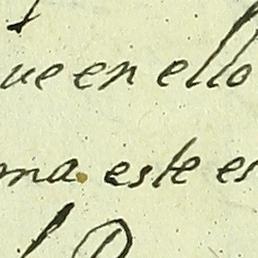 ue en ello
ma. este es